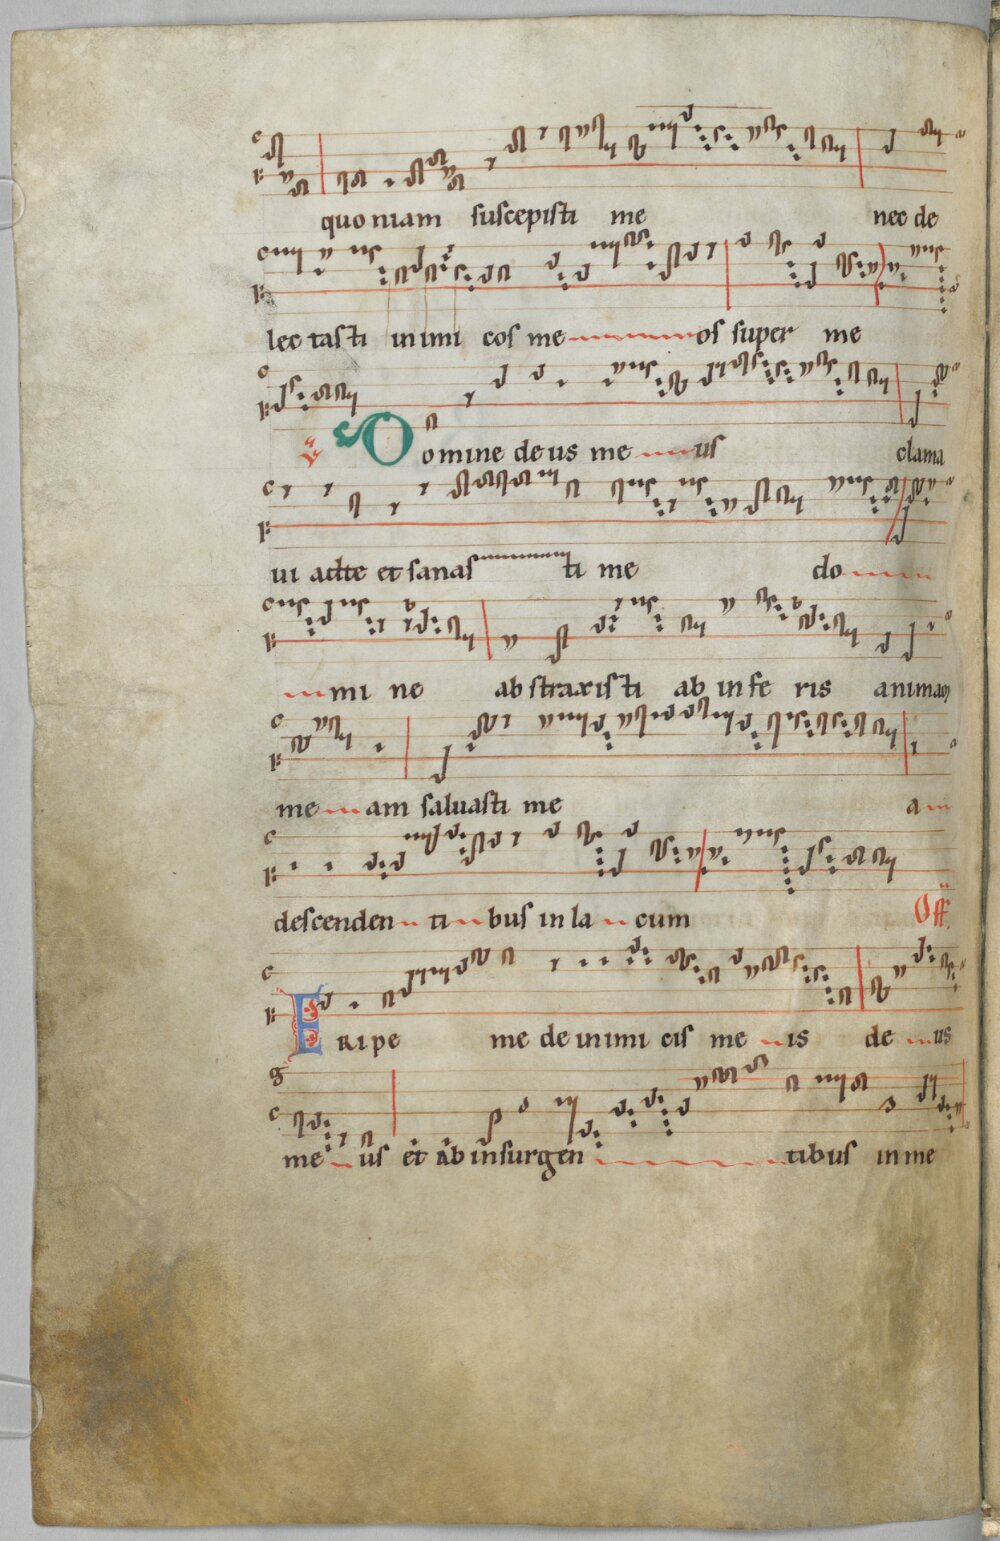 quo niam suscepisti me nec de
lec tasti inimi cos me os super me
℣ Domine deus me us clama
ui adte et sanas ti me do
mi ne abstraxisti ab infe ris animam
me am saluasti me a
descenden ti bus in la cum Off
ERipe me de inimi cis me is de us
me us et ab insurgen tibus in me